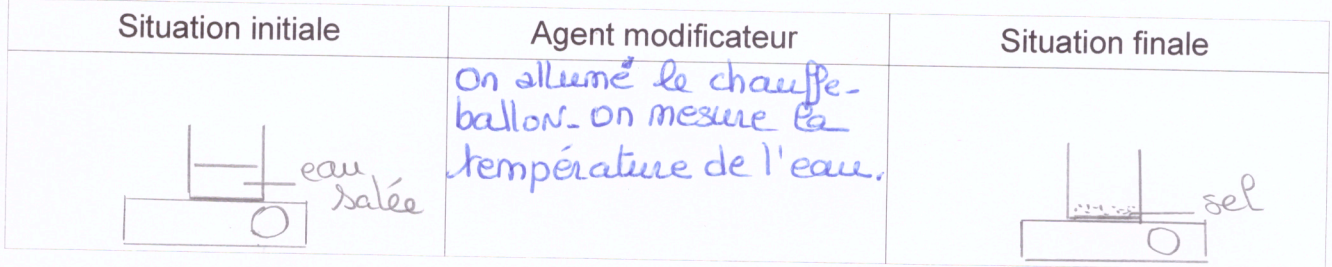 Situation initiale
Agent modificateur
Situation finale
On allumé le chauffe-
ballon. On mesure la
température de l'eau.
eau
salée
sel